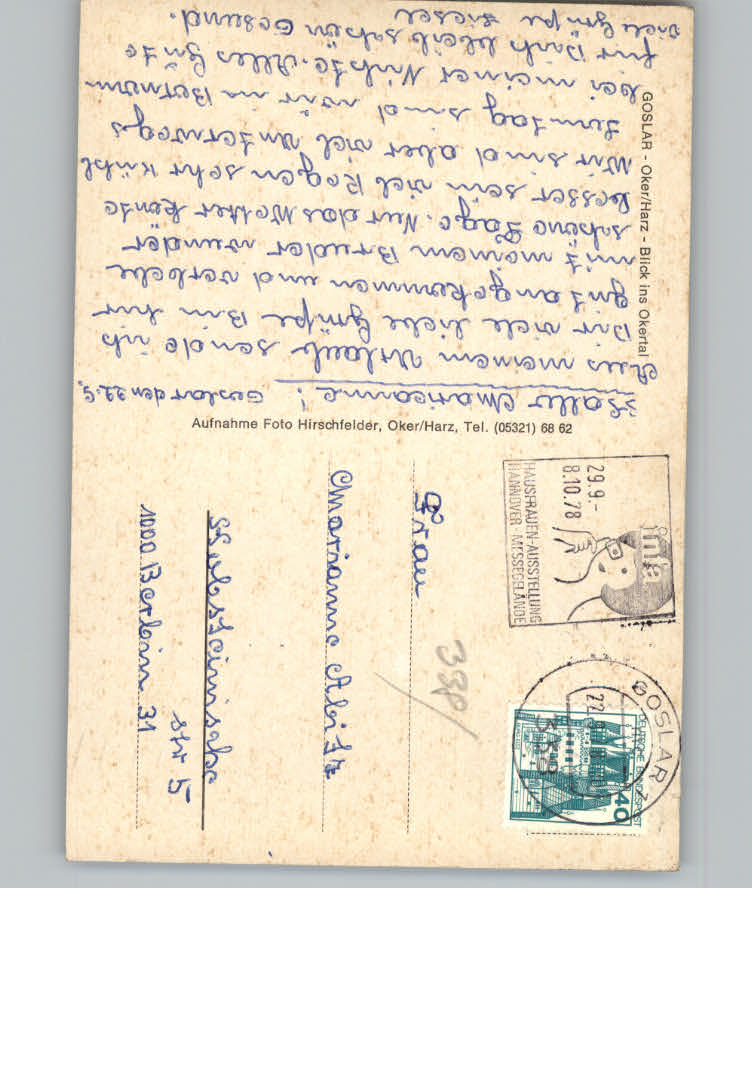 Hallo Marianne! Goslar den 22.9.
Aus meinem Urlaub sende ich
Dir viele liebe Grüße Bin hir
gut angekommen und verlebe
mit meinem Bruder wunder
schöne Tage. Nur das Wetter kente
besser sein viel Regen sehr kühl
Wir sind aber viel unterwegs
Sontag sind wir in
bei meiner Nichte. Alles Gute
für Dich bleib schön Gesund.
Viele Grüße Liesel
GOSLAR - Oker/Harz - Blick ins Okertal
Aufnahme Foto Hirschfelder, Oker/Harz, Tel. (05321) 68 62
29.9.-
8.10.78
HAUSFRAUEN-AUSSTELLUNG
HANNOVER · MESSEGELÄNDE
infa
GOSLAR 1
22.
338
DEUTSCHE BUNDESPOST
40
Frau
Marianne Abitz
Holsteinische
Str 5
1000 Berlin 31
338/